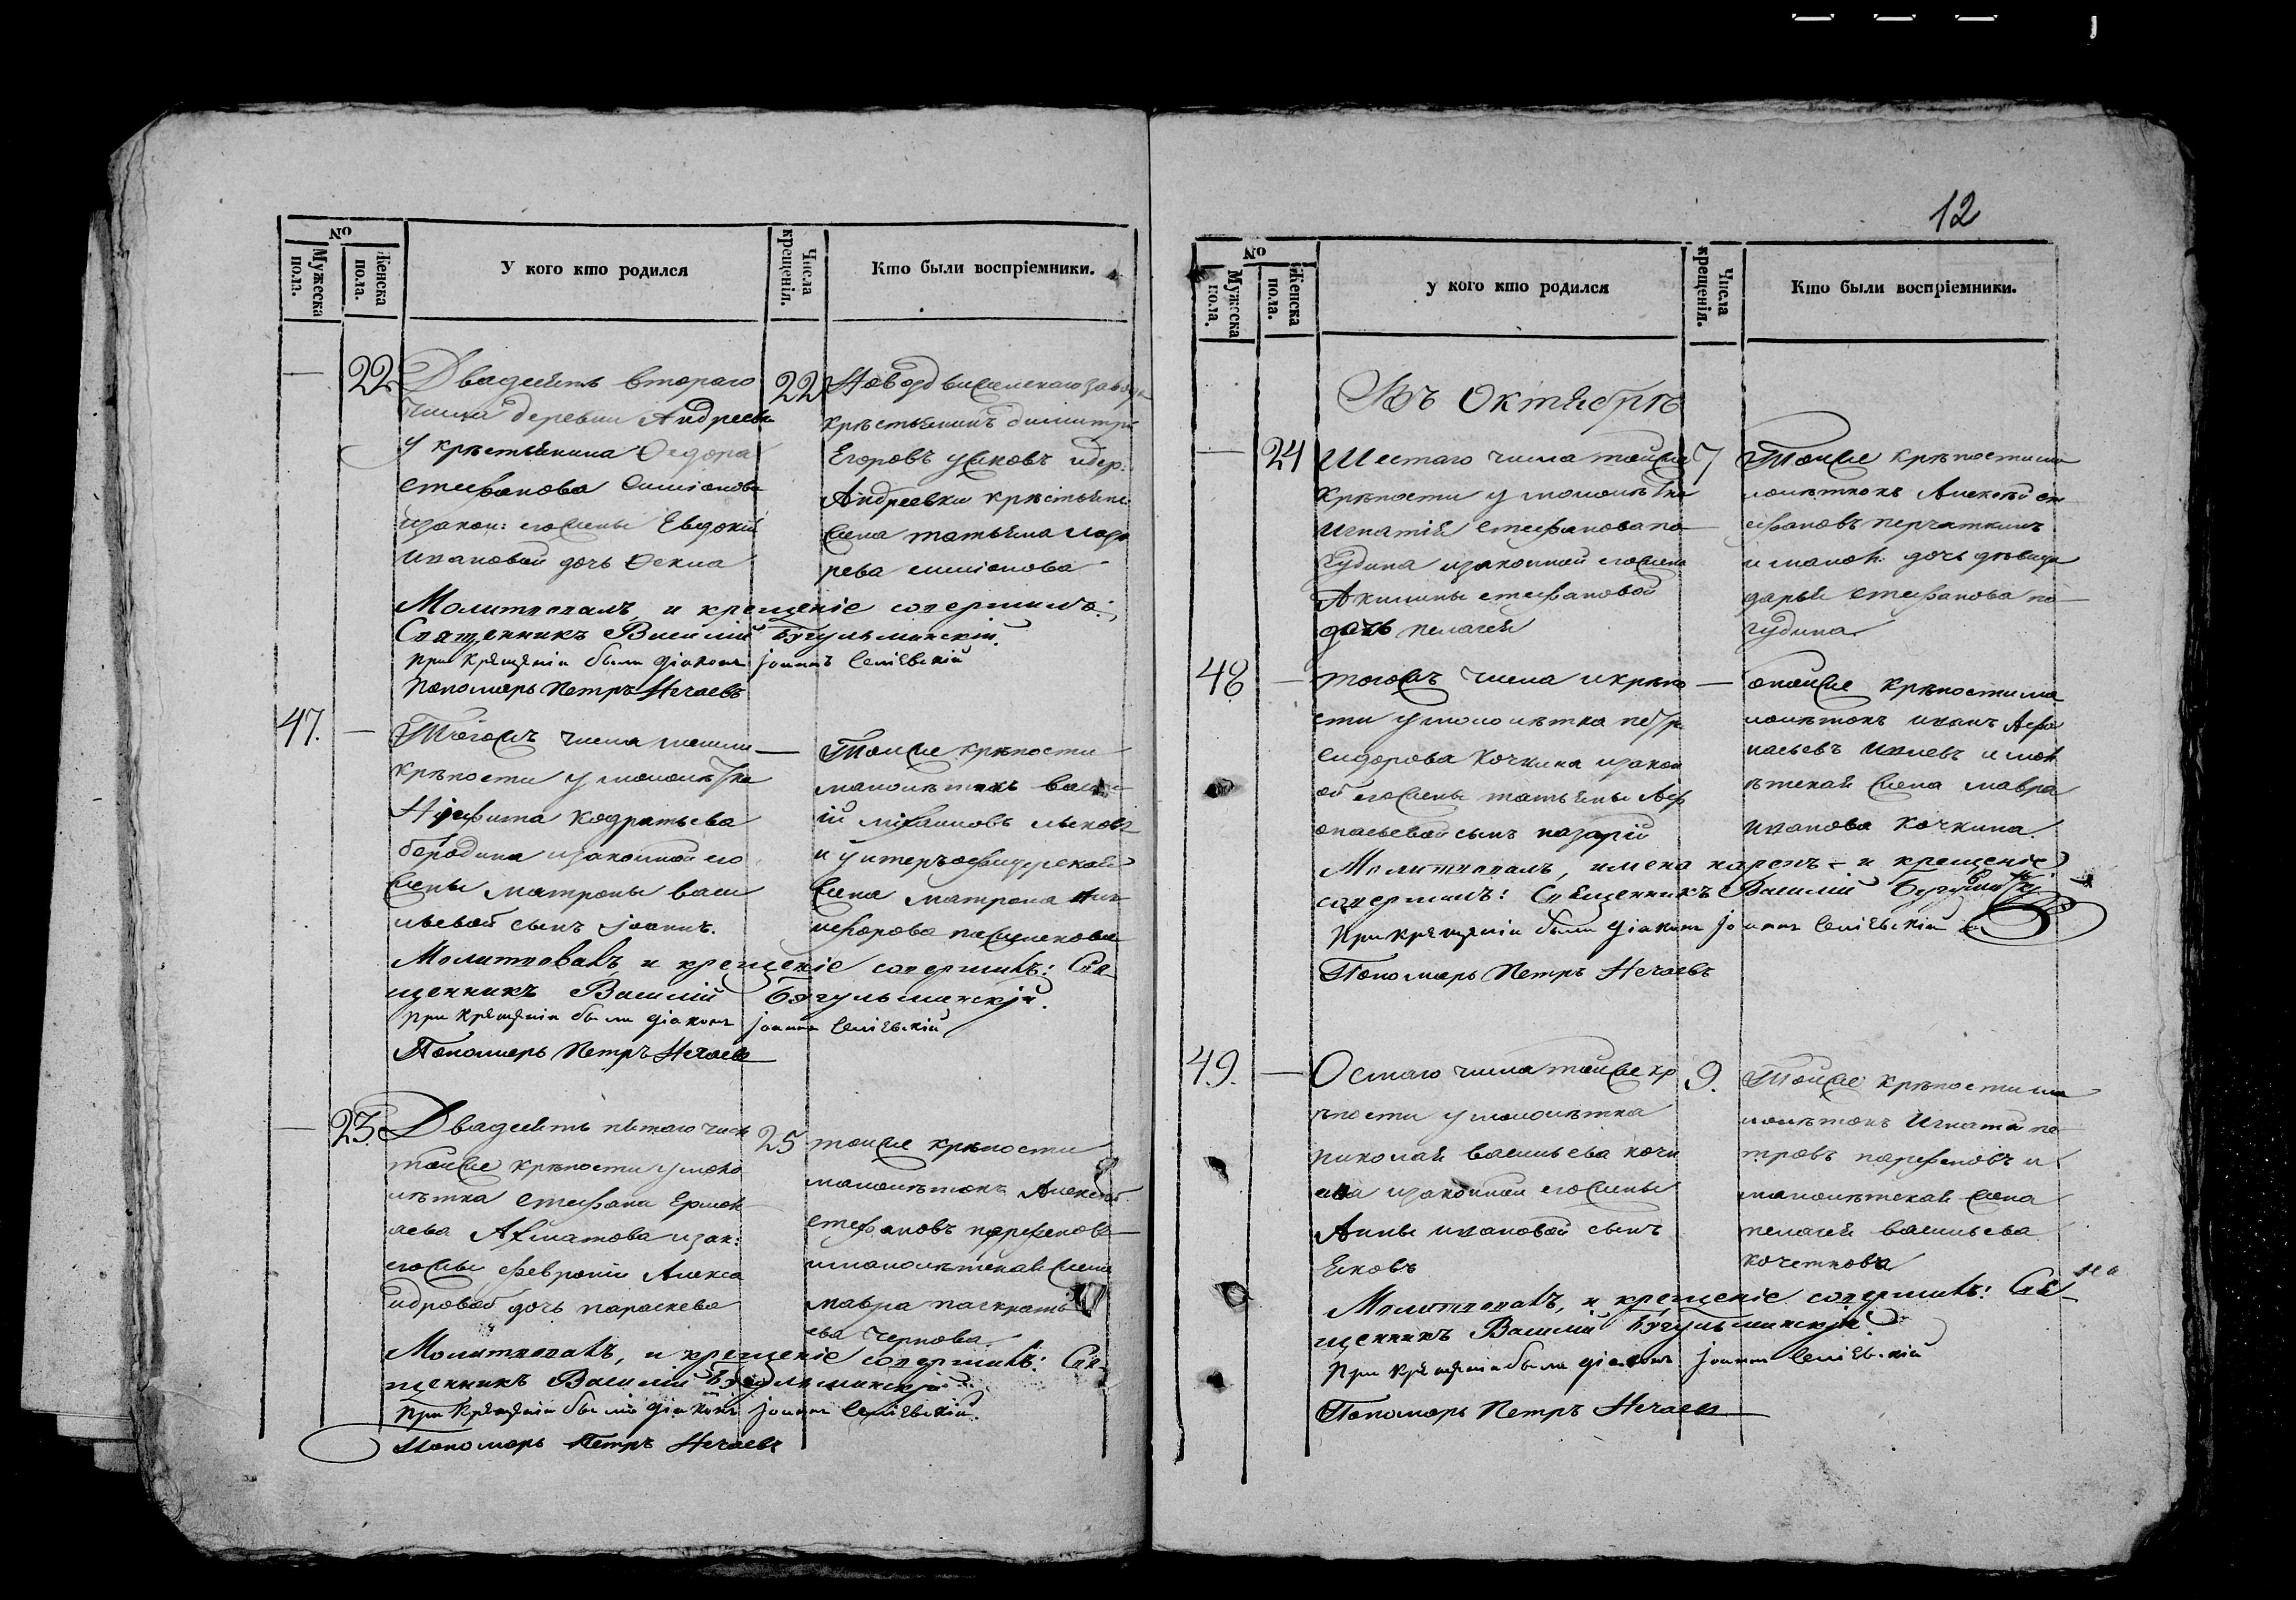 12
№
Мужеска пола.
Женска пола.
У кого кто родился
Числа крещенія.
Кто были воспріемники.
22
Двадцать втораго
числа деревни Андреевки
у крѣстьянина Ѳедора
Стефанова Симіонова
изакон: егожены Евдокіи
Ивановой дочь Ѳекла
22
завода
крѣстьянинъ Димитрій
Егоровъ Ушковъ идер:
Андреевки крѣстьянс
жена татьяна
рева симіонова
Молитвовалъ, и крещеніе совершилъ:
Священникъ Василій Бугульминскій.
при крѣщеніи были діаконъ Іоаннъ
Пономарь Петръ Нечаевъ
47.
Тогожъ числа
крѣпости у малолѣтка
Кодратьева
бородина изаконной его
жены матроны васи
льевой сынъ Іоаннъ.
Тойже крѣпости
малолѣтокъ васи
ій михаиловъ
и унтеръофицерская
жена матрона ник
ифорова
Молитвовалъ, и крещеніе совершилъ: Свя
щенникъ Василій Бугульминскій.
при крѣщеніи были діаконъ Іоаннъ
Пономарь Петръ Нечаевъ
23.
Двадцать пятаго числ
тойже крѣпости умало
лѣтка Стефана Ермол
аева Ахматова изак:
егожены февроніи Алекса
ндровой дочь параскева
25
тойже крѣпости
малолѣтокъ Алексѣй
Стефановъ парфеновъ
ималолѣтская жена
мавра панкрать
ева Чернова
Молитвовалъ, и крещеніе совершилъ: Свя
щенникъ Василій Бугульминскій.
при крѣщеніи были діаконъ Іоаннъ
Пономарь Петръ Нечаевъ
№
Мужеска пола.
Женска пола.
у кого кто родился
Числа крещенія.
Кто были воспріемники.
Въ Октябрѣ
24
Шестаго числа тойже
крѣпости у малолѣтка
Игнатія Стефанова по
гудина изаконной егожены
Акилины стефановой
дочь пелагея
7
Тойже крѣпости ма
лолѣтокъ Алексѣй ст
ефановъ перчаткинъ
и малол: дочь дѣвица
дарья Стефанова по
гудина
48
тогожъ числа икрѣпо
сти умалолѣтка петра
Сидорова Кочкина изакон
ой егожены татьяны Аф
онасьевой сынъ назарій
онойже крѣпости ма
лолѣтокъ иванъ Афо
насьевъ Ивлевъ и мал
ѣтская жена мавра
иванова Кочкина.
Молитвовалъ, имена нарекъ и крещеніе
совершилъ: Священникъ Василій
При крѣщеніи были діаконъ Іоаннъ
Пономарь Петръ Нечаевъ
49.
Осмаго числа тойже кр
ѣпости умалолѣтка
николая васильева кочк
ина изаконной егожены
Анны ивановой сынъ
Яковъ
9.
Тойже крѣпости ма
лолѣтокъ Игнатій пе
тровъ парфеновъ и
малолѣтская жена
пелагея васильева
кочеткова
Молитвовалъ, и крещеніе совершилъ: Свя
щенникъ Василій Бугульминскій.
При крѣщеніи были діаконъ Іоаннъ
Пономарь Петръ Нечаевъ